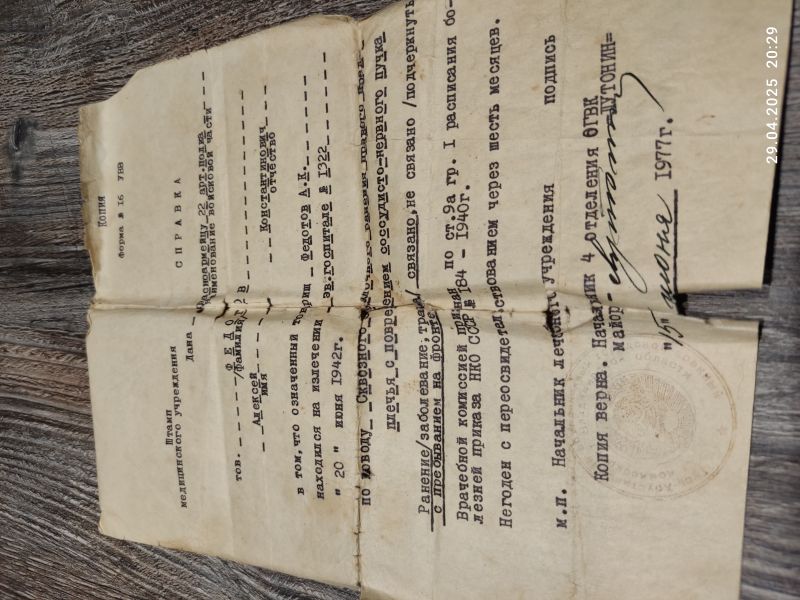 Копия
Форма № 16 УВВ
Штамп
медицинского учреждения
СПРАВКА
Дана
красноармейцу 22 арт.полка
наименование войсковой части
тов. ФЕДО В
/фамилия/
Алексей Константинович
имя отчество
в том, что означенный товарищ Федотов А.К.
находился на излечении эв.госпитале № 1322
" 20 " июня 1942г.
по поводу Сквозного ранения правого
плеча с повреением сосудисто-нервного пучка
Ранение/заболевание, травма/ связано, не связано /подчеркнуть
с пребыванием на фронте
Врачебной комиссией по ст.9а гр. I расписания бо-
лезней приказа НКО СССР № 184 - 1940г.
Негоден с пересвидетельствованием через шесть месяцев.
м.п. Начальник лечебного учреждения подпись
Копия верна. Начальник 4 отделения ОГВК
майор- ЛУТОНИН=
"15" июня 1977г.
29.04.2025 20:29